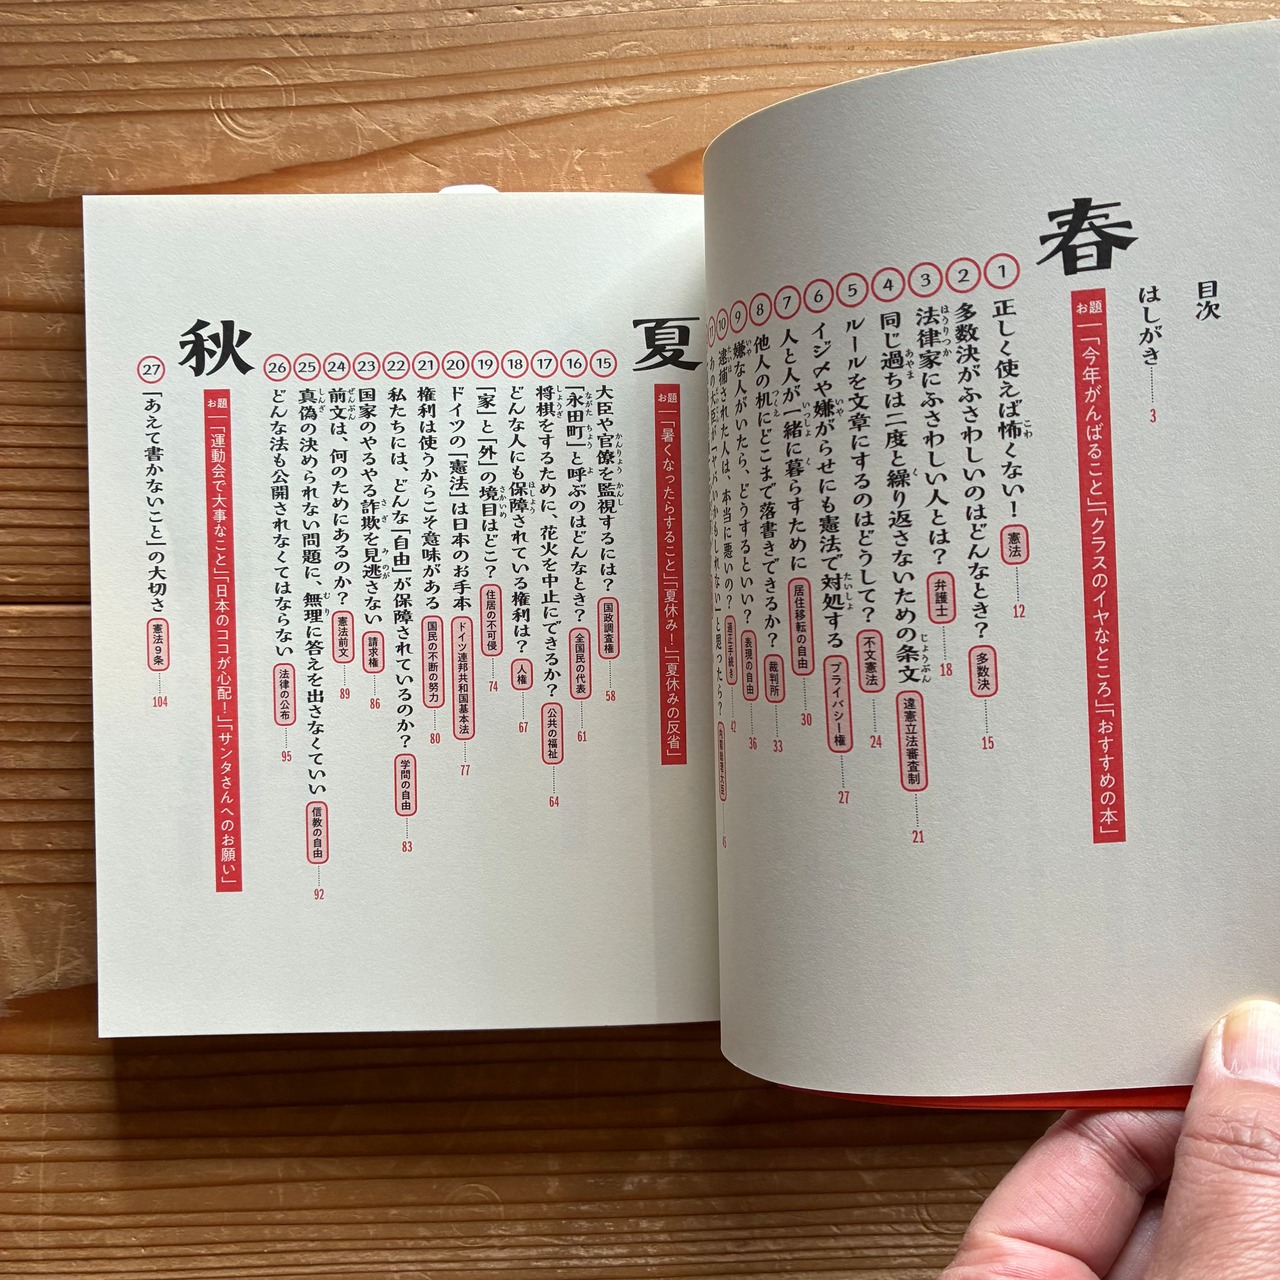 目次
はしがき 3
春
お題 「今年がんばること」「クラスのイヤなところ」「おすすめの本」
1 正しく使えば怖くない! 憲法 12
2 多数決がふさわしいのはどんなとき? 多数決 15
3 法律家にふさわしい人とは? 弁護士 18
4 同じ過ちは二度と繰り返さないための条文 違憲立法審査制 21
5 ルールを文章にするのはどうして? 不文憲法 24
6 イジメや嫌がらせにも憲法で対処する プライバシー権 27
7 人と人が一緒に暮らすために 居住移転の自由 30
8 他人の机にどこまで落書きできるか? 裁判所 33
9 嫌な人がいたら、どうするといい? 表現の自由 36
10 逮捕された人は、本当に悪いの? 適正手続き 42
11 と思ったら? 内閣総理大臣 45
夏
お題 「暑くなったらすること」「夏休み!」「夏休みの反省」
15 大臣や官僚を監視するには? 国政調査権 58
16 「永田町」と呼ぶのはどんなとき? 全国民の代表 61
17 将棋をするために、花火を中止にできるか? 公共の福祉 64
18 どんな人にも保障されている権利は? 人権 67
19 「家」と「外」の境目はどこ? 住居の不可侵 74
20 ドイツの「憲法」は日本のお手本 ドイツ連邦共和国基本法 77
21 権利は使うからこそ意味がある 国民の不断の努力 80
22 私たちには、どんな「自由」が保障されているのか? 学問の自由 83
23 国家のやるやる詐欺を見逃さない 請求権 86
24 前文は、何のためにあるのか? 憲法前文 89
25 真偽の決められない問題に、無理に答えを出さなくていい 信教の自由 92
26 どんな法も公開されなくてはならない 法律の公布 95
秋
お題 「運動会で大事なこと」「日本のココが心配!」「サンタさんへのお願い」
27 「あえて書かないこと」の大切さ 憲法9条 104